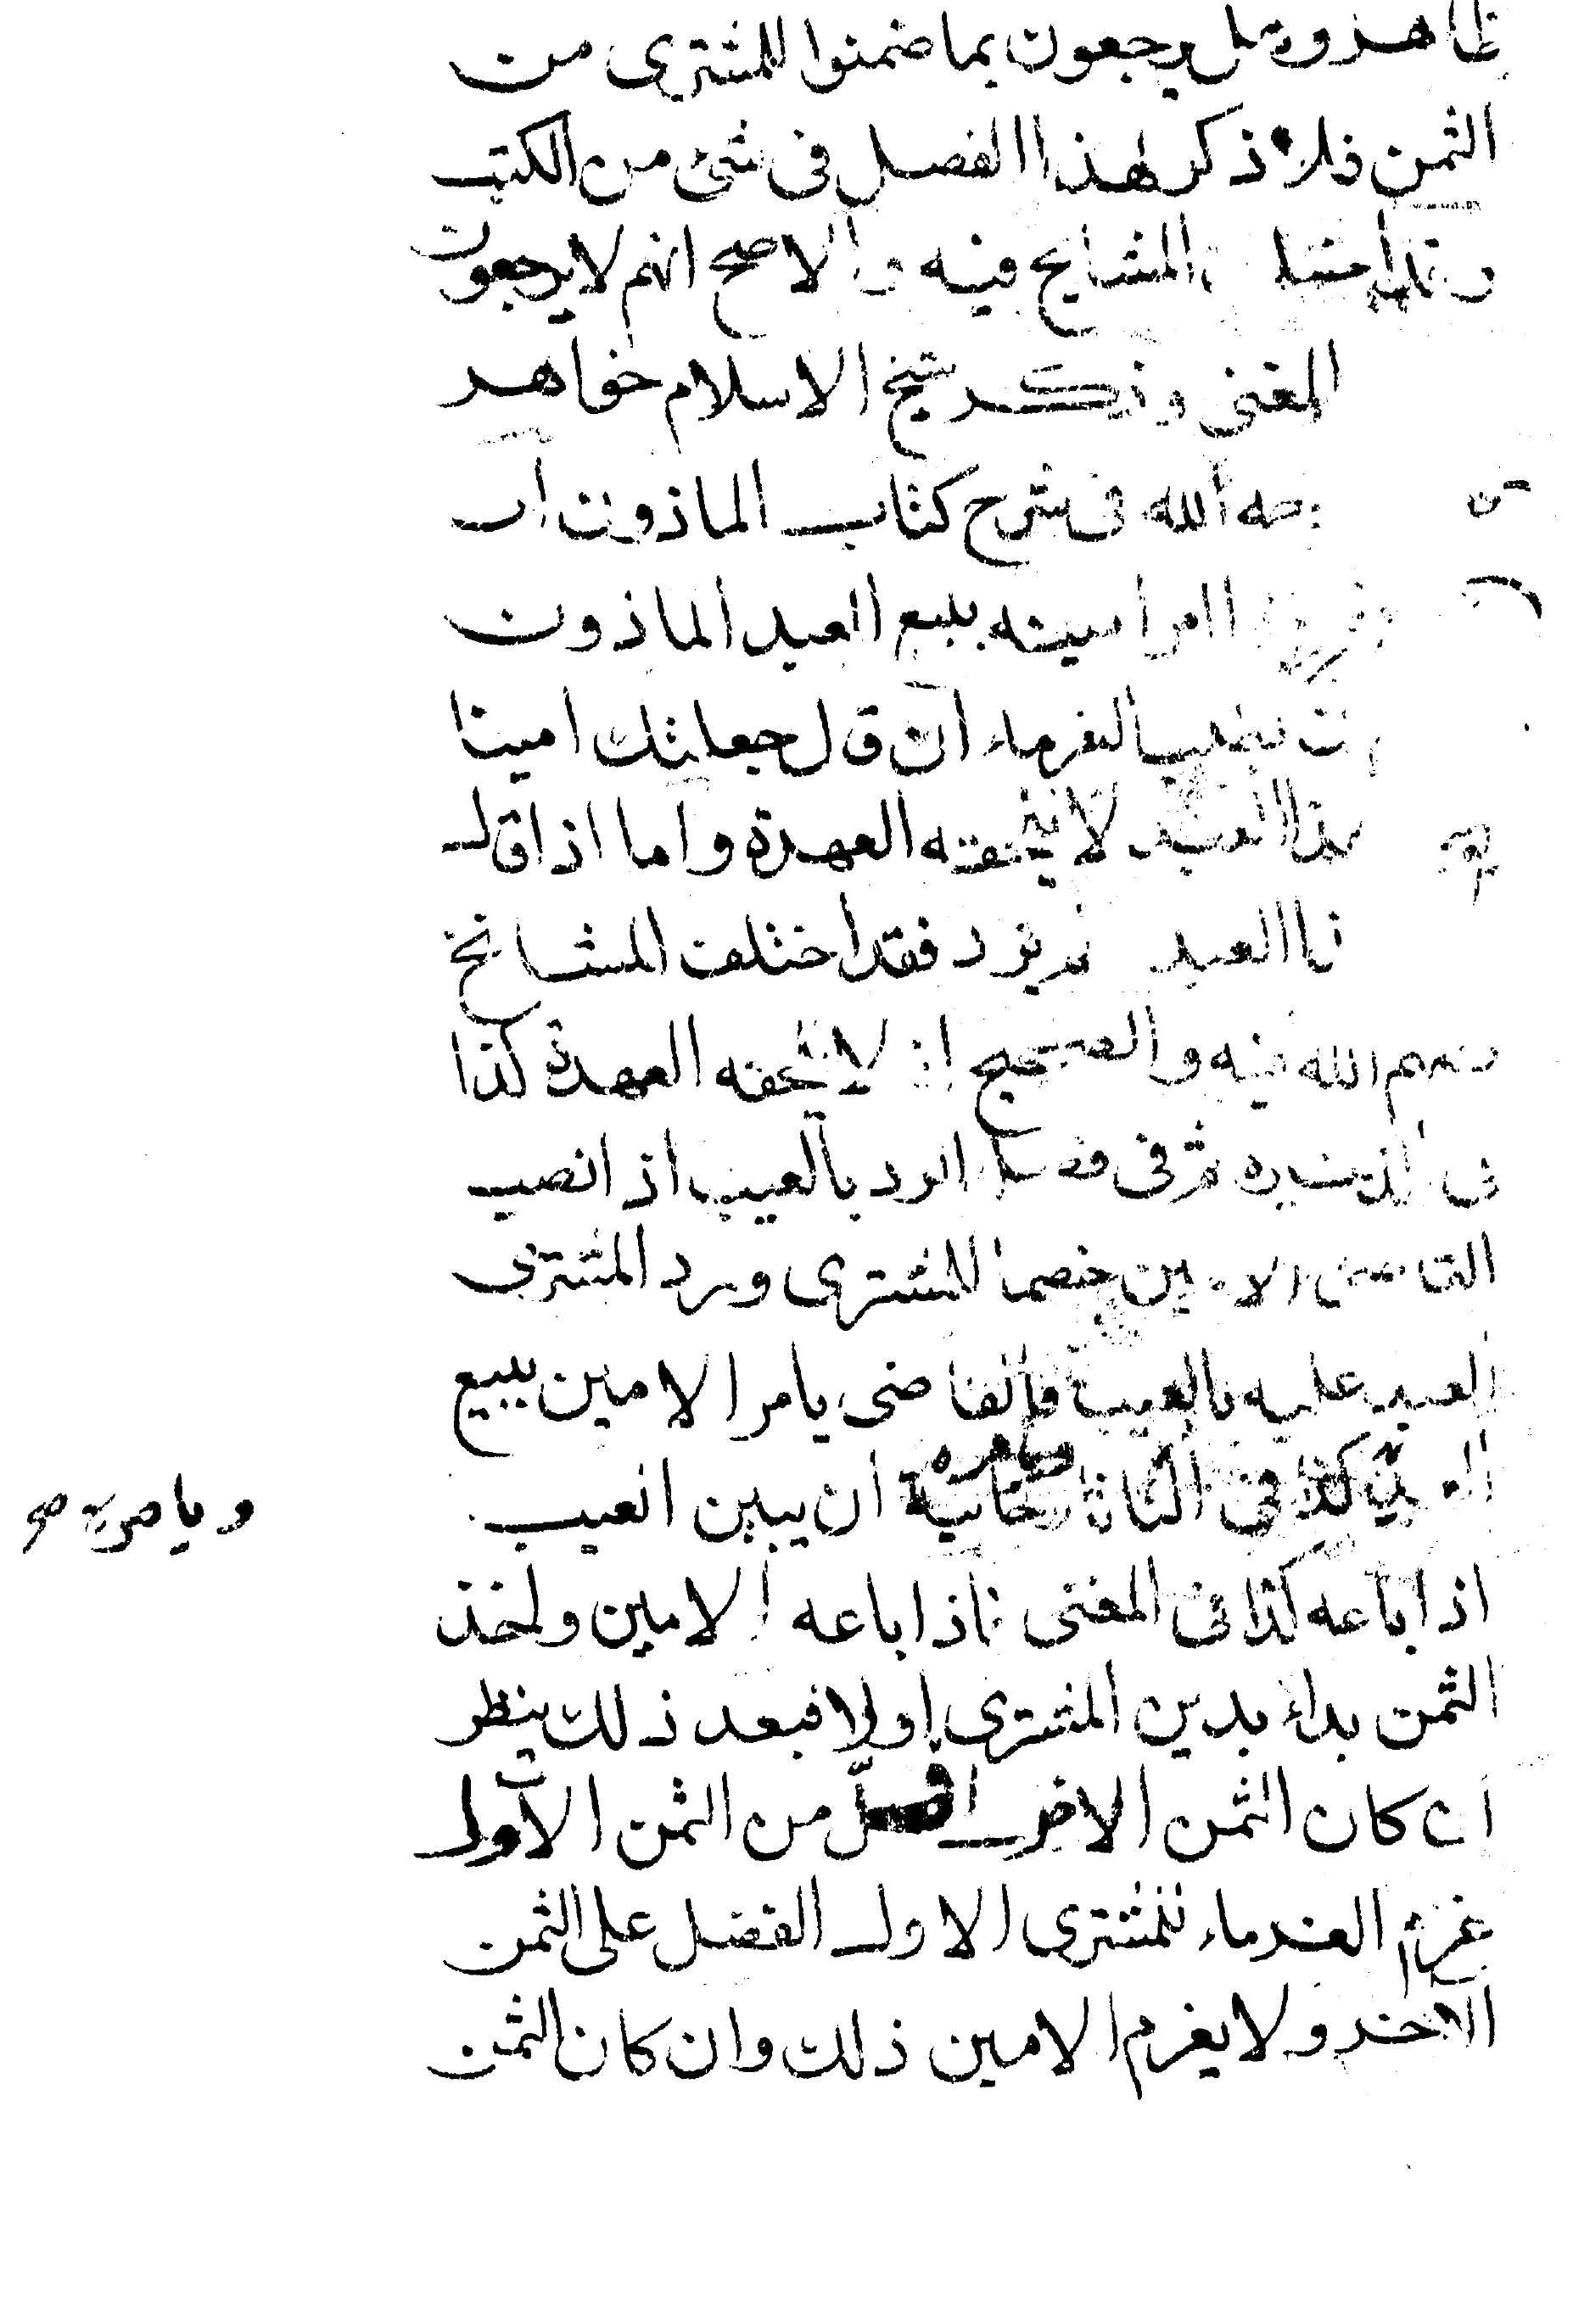 ظاهر وهل يرجعون بما ضمنوا للمشترى من
الثمن فلا ذكر لهذا الفصل فى شئ من الكتب
وقد اختلف المشايخ فيه والاصح انهم لا يرجعون
المغنى وذكر شيخ الاسلام خواهر
رحمه الله فى شرح كتاب الماذون ان
امر امينه ببيع العبد الماذون
بطلب الغرماء ان قال جعلتك امينا
هذا العبد لا يلحقه العهدة واما اذا قال
العبد ولم يزد فقد اختلف المشايخ
رحمهم الله فيه والصحيح انه لا يلحقه العهدة كذا
فى الذخيرة ثم فى فصل الرد بالعيب اذا نصب
القاضى الامين خصما للمشترى ورد المشترى
العبد عليه بالعيب فالقاضى يامر الامين ببيع
العبد كذا فى التاتارخانية ويامره ان يبين العيب
ويامره صح
اذا باعه كذا فى المغنى فاذا باعه الامين واخذ
الثمن بداء بدين المشترى اولا فبعد ذلك ينظر
ان كان الثمن الاخر اقل من الثمن الاول
غرم الغرماء للمشترى الاول الفضل على الثمن
الاخر ولا يغرم الامين ذلك وان كان الثمن